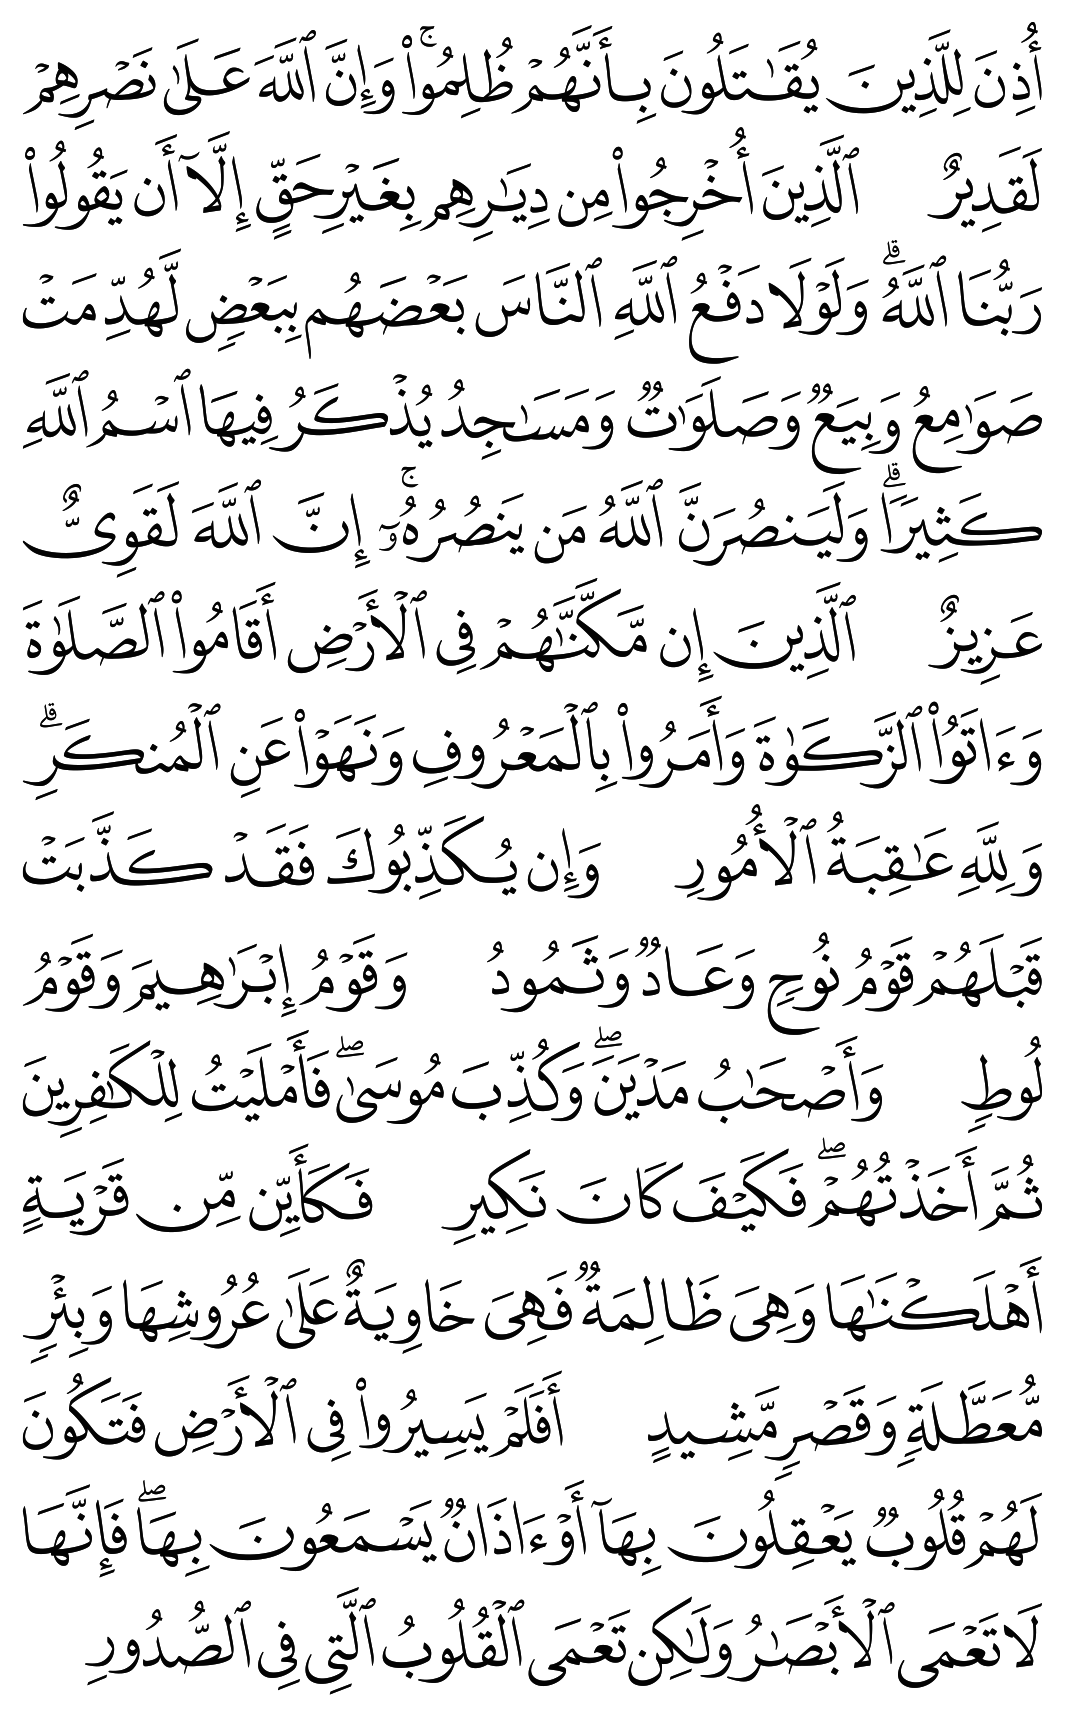 أُذِنَ لِلَّذِينَ يُقَٰتَلُونَ بِأَنَّهُمۡ ظُلِمُواْۚ وَإِنَّ ٱللَّهَ عَلَىٰ نَصۡرِهِمۡ
لَقَدِيرٌ ٱلَّذِينَ أُخۡرِجُواْ مِن دِيَٰرِهِم بِغَيۡرِ حَقٍّ إِلَّآ أَن يَقُولُواْ
رَبُّنَا ٱللَّهُۗ وَلَوۡلَا دَفۡعُ ٱللَّهِ ٱلنَّاسَ بَعۡضَهُم بِبَعۡضٖ لَّهُدِّمَتۡ
صَوَٰمِعُ وَبِيَعٞ وَصَلَوَٰتٞ وَمَسَٰجِدُ يُذۡكَرُ فِيهَا ٱسۡمُ ٱللَّهِ
كَثِيرٗاۗ وَلَيَنصُرَنَّ ٱللَّهُ مَن يَنصُرُهُۥٓۚ إِنَّ ٱللَّهَ لَقَوِيٌّ
عَزِيزٌ ٱلَّذِينَ إِن مَّكَّنَّٰهُمۡ فِي ٱلۡأَرۡضِ أَقَامُواْ ٱلصَّلَوٰةَ
وَءَاتَوُاْ ٱلزَّكَوٰةَ وَأَمَرُواْ بِٱلۡمَعۡرُوفِ وَنَهَوۡاْ عَنِ ٱلۡمُنكَرِۗ
وَلِلَّهِ عَٰقِبَةُ ٱلۡأُمُورِ وَإِن يُكَذِّبُوكَ فَقَدۡ كَذَّبَتۡ
قَبۡلَهُمۡ قَوۡمُ نُوحٖ وَعَادٞ وَثَمُودُ وَقَوۡمُ إِبۡرَٰهِيمَ وَقَوۡمُ
لُوطٖ وَأَصۡحَٰبُ مَدۡيَنَۖ وَكُذِّبَ مُوسَىٰۖ فَأَمۡلَيۡتُ لِلۡكَٰفِرِينَ
ثُمَّ أَخَذۡتُهُمۡۖ فَكَيۡفَ كَانَ نَكِيرِ فَكَأَيِّن مِّن قَرۡيَةٍ
أَهۡلَكۡنَٰهَا وَهِيَ ظَالِمَةٞ فَهِيَ خَاوِيَةٌ عَلَىٰ عُرُوشِهَا وَبِئۡرٖ
مُّعَطَّلَةٖ وَقَصۡرٖ مَّشِيدٍ أَفَلَمۡ يَسِيرُواْ فِي ٱلۡأَرۡضِ فَتَكُونَ
لَهُمۡ قُلُوبٞ يَعۡقِلُونَ بِهَآ أَوۡ ءَاذَانٞ يَسۡمَعُونَ بِهَاۖ فَإِنَّهَا
لَا تَعۡمَى ٱلۡأَبۡصَٰرُ وَلَٰكِن تَعۡمَى ٱلۡقُلُوبُ ٱلَّتِي فِي ٱلصُّدُورِ